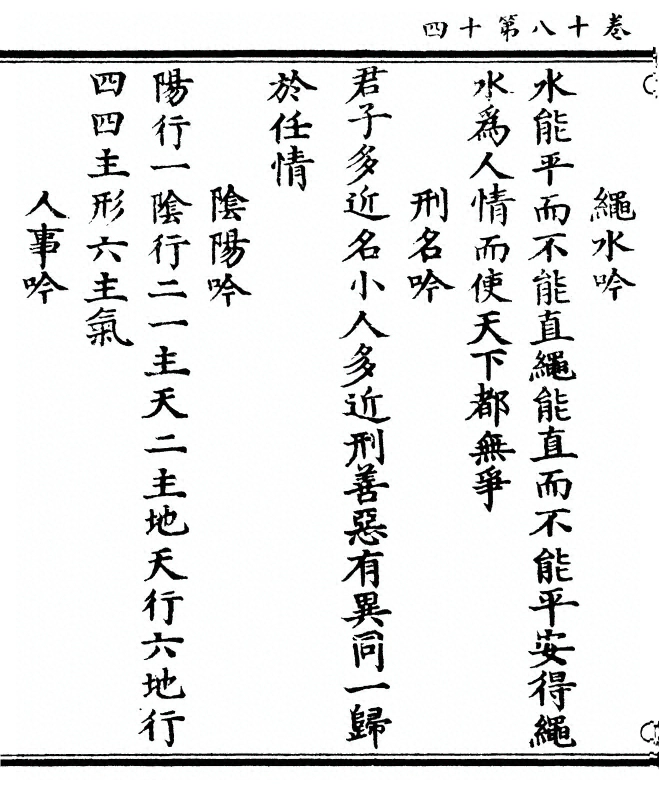 卷十八第十四
繩水吟
水能平而不能直繩能直而不能平安得繩
水爲人情而使天下都無爭
刑名吟
君子多近名小人多近刑善惡有異同一歸
於任情
陰陽吟
陽行一陰行二一主天二主地天行六地行
四四主形六主氣
人事吟